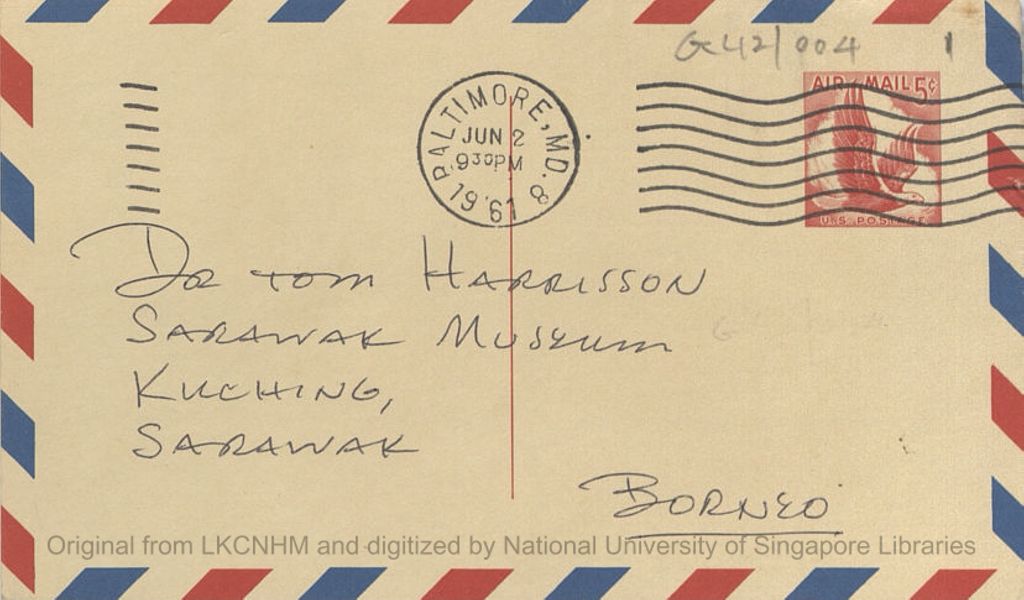 GL42/004 1
AIR MAIL 5¢
U.S. POSTAGE
BALTIMORE, MD. 8
JUN 2
930PM
1961
DR TOM HARRISSON
SARAWAK MUSEUM
KUCHING,
SARAWAK
BORNEO
Original from LKCNHM and digitized by National University of Singapore Libraries